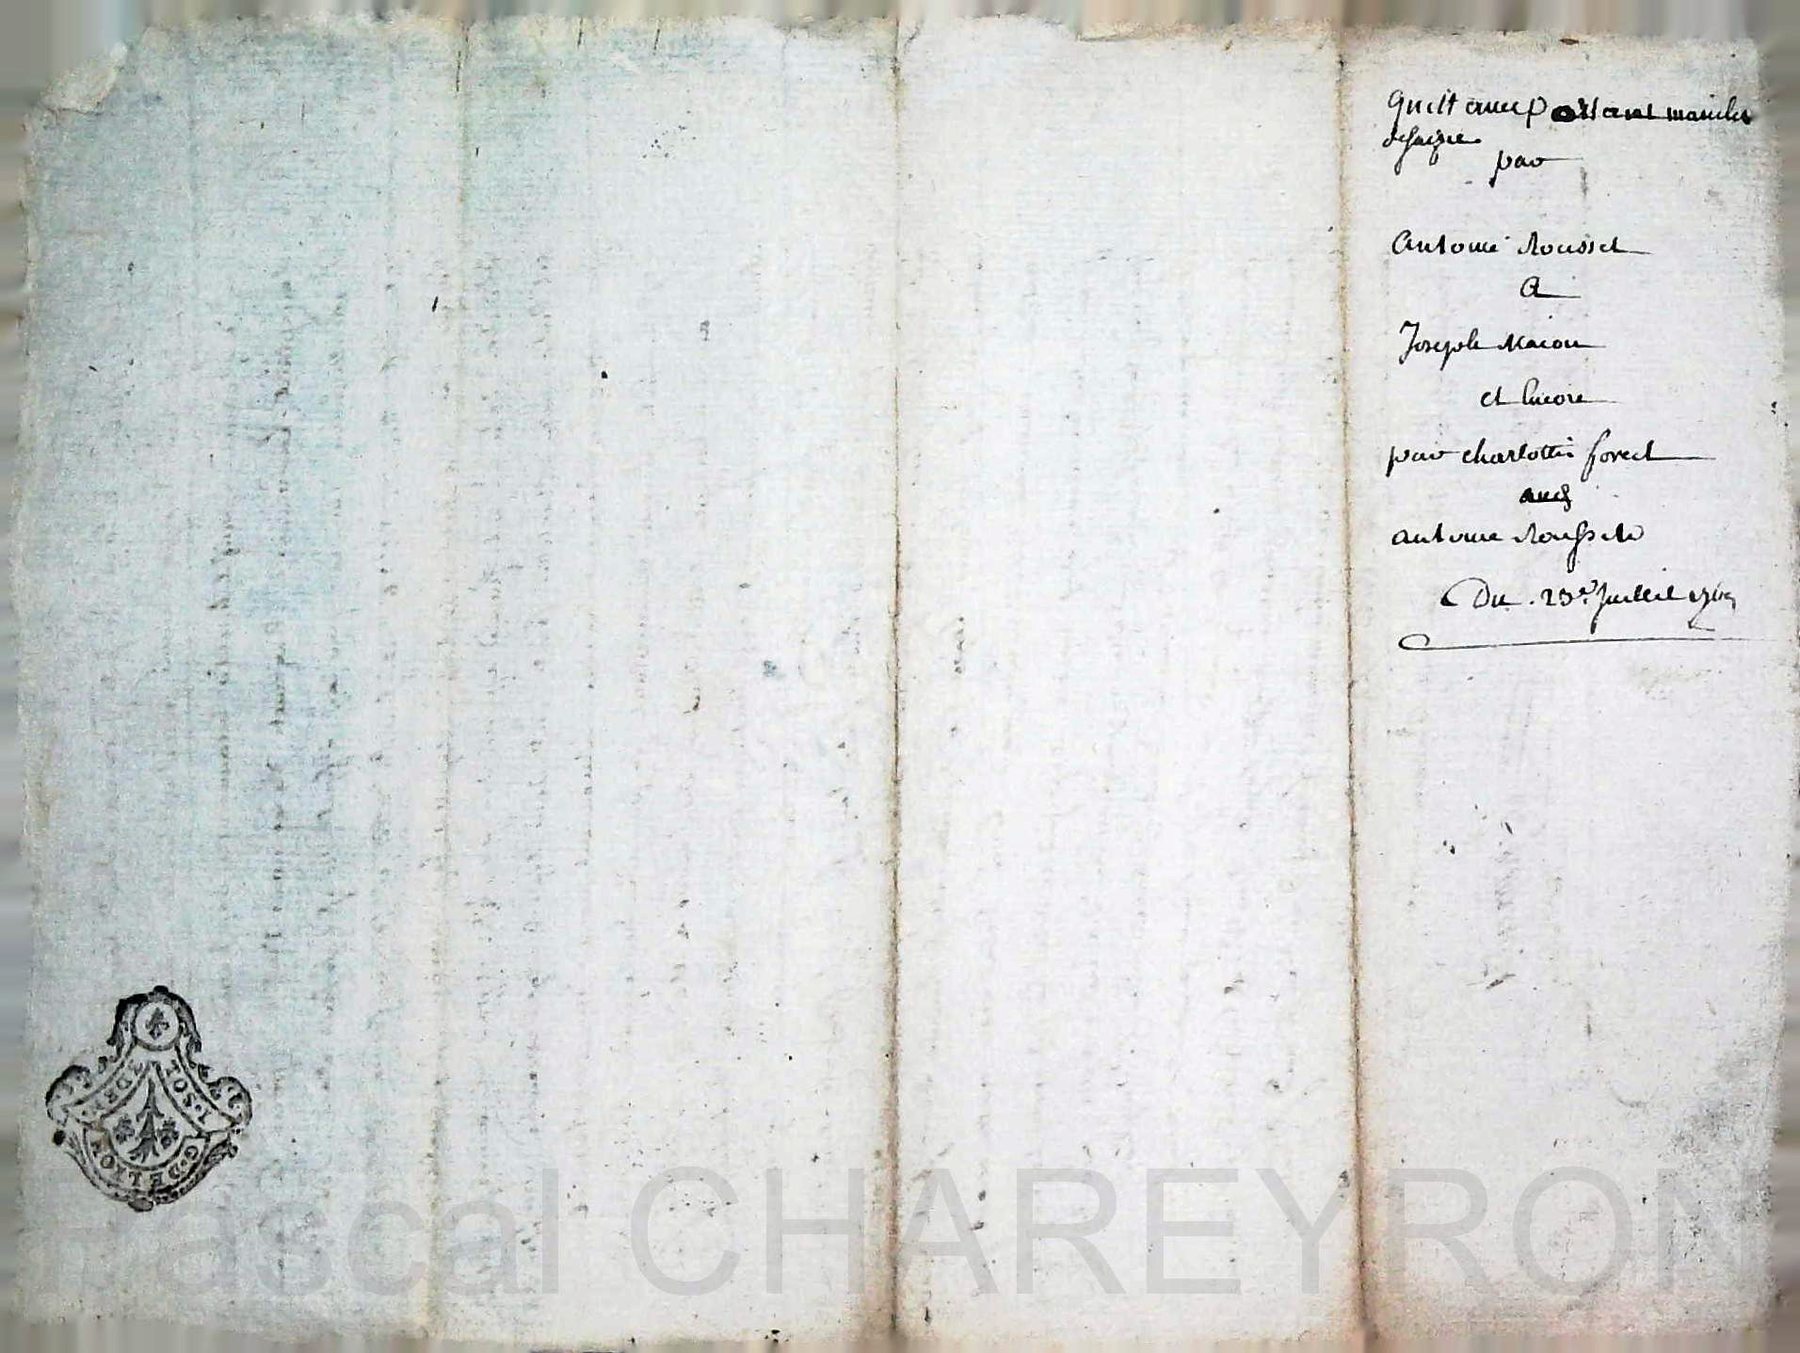 Quittance portant mainlev
de saizie
par
Antoine Rousset
A
Joseph Macon
et Encore
par charlotte forest
aud
antoine Rousset
Du 23e Juillet
2 DEN.
1. SOL
G. DE LYON
Pascal CHAREYRON